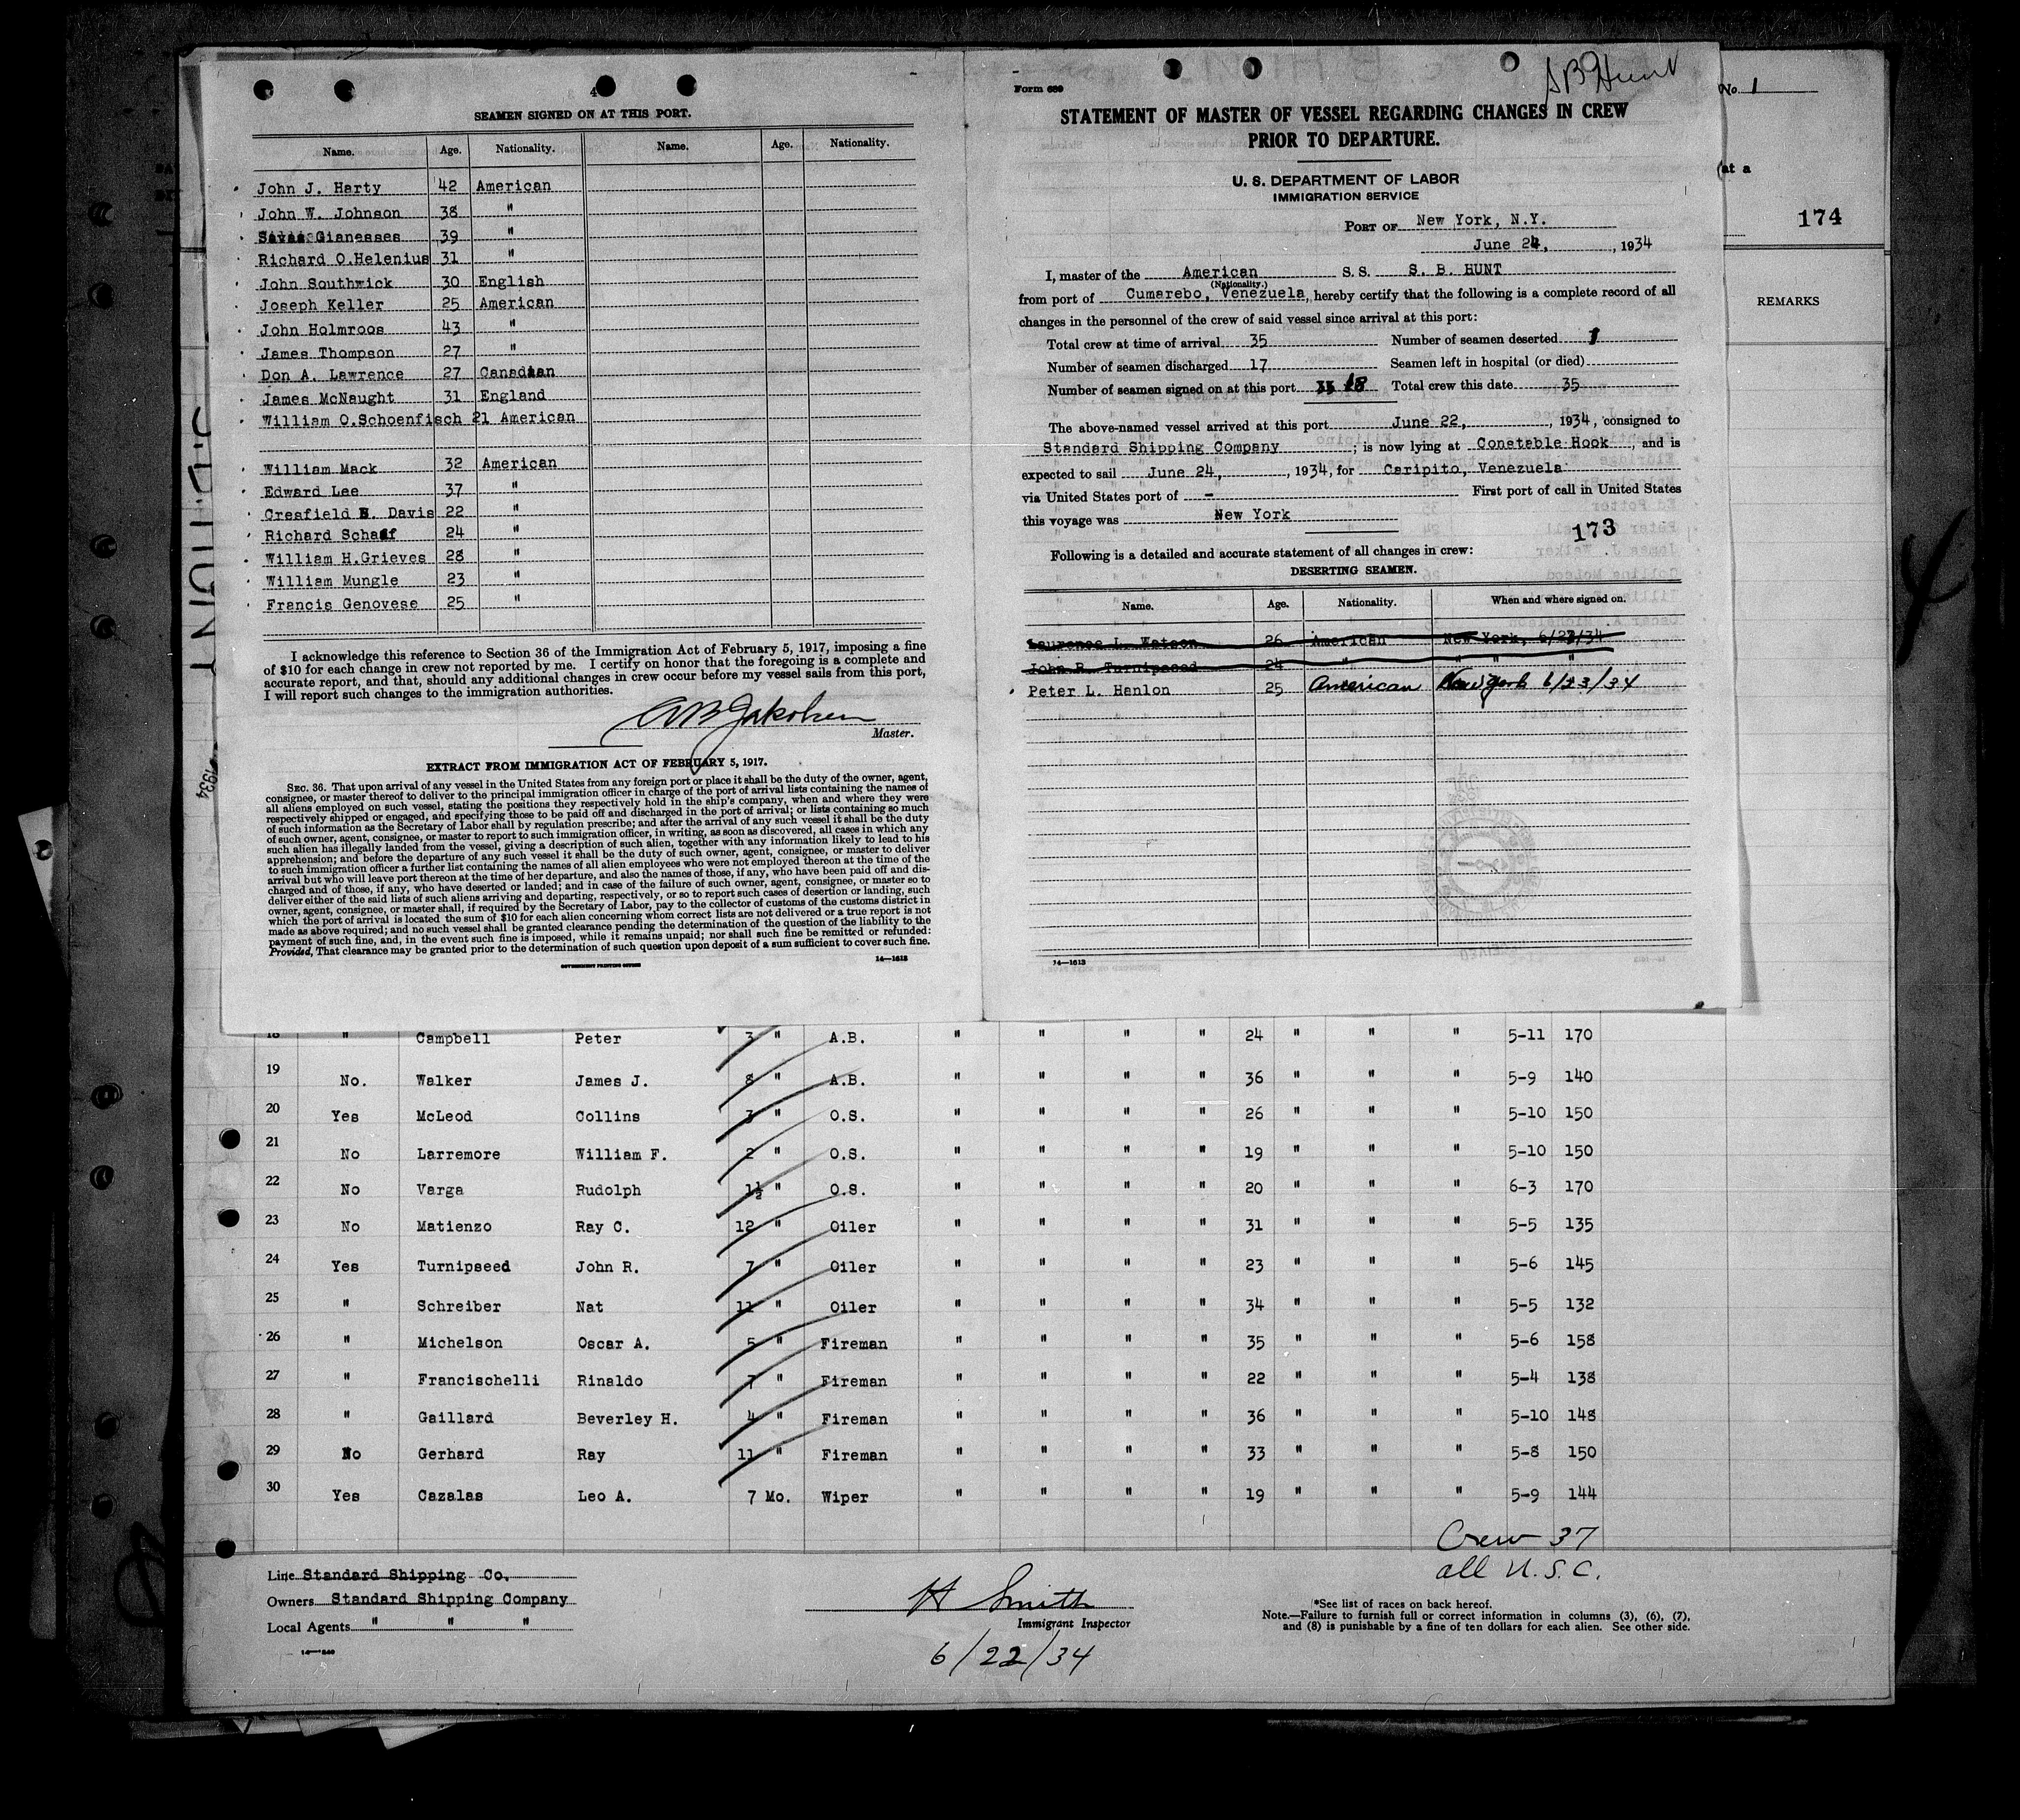 4
SEAMEN SIGNED ON AT THIS PORT.
Name. Age. Nationality. Name. Age. Nationality.
John J. Harty 42 American
John W. Johnson 38 "
Gianesses 39 "
Richard O.Helenius 31 "
John Southwick 30 English
Joseph Keller 25 American
John Holmroos 43 "
James Thompson 27 "
Don A. Lawrence 27 Canadian
James McNaught 31 England
William O.Schoenfisch 21 American
William Mack 32 American
Edward Lee 37 "
Cresfield Davis 22 "
Richard Schaaf 24 "
William H.Grieves 28 "
William Mungle 23 "
Francis Genovese 25 "
I acknowledge this reference to Section 36 of the Immigration Act of February 5, 1917, imposing a fine
of $10 for each change in crew not reported by me. I certify on honor that the foregoing is a complete and
accurate report, and that, should any additional changes in crew occur before my vessel sails from this port,
I will report such changes to the immigration authorities.
Master.
EXTRACT FROM IMMIGRATION ACT OF FEBRUARY 5, 1917.
SEC. 36. That upon arrival of any vessel in the United States from any foreign port or place it shall be the duty of the owner, agent,
consignee, or master thereof to deliver to the principal immigration officer in charge of the port of arrival lists containing the names of
all aliens employed on such vessel, stating the positions they respectively hold in the ship's company, when and where they were
respectively shipped or engaged, and specifying those to be paid off and discharged in the port of arrival; or lists containing so much
of such information as the Secretary of Labor shall by regulation prescribe; and after the arrival of any such vessel it shall be the duty
of such owner, agent, consignee, or master to report to such immigration officer, in writing, as soon as discovered, all cases in which any
such alien has illegally landed from the vessel, giving a description of such alien, together with any information likely to lead to his
apprehension; and before the departure of any such vessel it shall be the duty of such owner, agent, consignee, or master to deliver
to such immigration officer a further list containing the names of all alien employees who were not employed thereon at the time of the
arrival but who will leave port thereon at the time of her departure, and also the names of those, if any, who have been paid off and dis-
charged and of those, if any, who have deserted or landed; and in case of the failure of such owner, agent, consignee, or master so to
deliver either of the said lists of such aliens arriving and departing, respectively, or so to report such cases of desertion or landing, such
owner, agent, consignee, or master shall, if required by the Secretary of Labor, pay to the collector of customs of the customs district in
which the port of arrival is located the sum of $10 for each alien concerning whom correct lists are not delivered or a true report is not
made as above required; and no such vessel shall be granted clearance pending the determination of the question of the liability to the
payment of such fine, and, in the event such fine is imposed, while it remains unpaid; nor shall such fine be remitted or refunded:
Provided, That clearance may be granted prior to the determination of such question upon deposit of a sum sufficient to cover such fine.
GOVERNMENT PRINTING OFFICE 14—1613
S B Hunt
Form 689
STATEMENT OF MASTER OF VESSEL REGARDING CHANGES IN CREW
PRIOR TO DEPARTURE.
U. S. DEPARTMENT OF LABOR
IMMIGRATION SERVICE
PORT OF New York, N.Y.
June 24, , 1934
I, master of the American S. S. S. B. HUNT
(Nationality.)
from port of Cumarebo, Venezuela, hereby certify that the following is a complete record of all
changes in the personnel of the crew of said vessel since arrival at this port:
Total crew at time of arrival 35 Number of seamen deserted 1
Number of seamen discharged 17 Seamen left in hospital (or died)
Number of seamen signed on at this port 18 Total crew this date 35
The above-named vessel arrived at this port June 22, , 1934, consigned to
Standard Shipping Company ; is now lying at Constable Hook , and is
expected to sail June 24, , 1934, for Caripito, Venezuela
via United States port of - First port of call in United States
this voyage was New York
173
Following is a detailed and accurate statement of all changes in crew:
DESERTING SEAMEN.
Name. Age. Nationality. When and where signed on.
Laurence L. Watson 26 American New York, 6/23/34
John R. Turnipseed 24 " " " "
Peter L. Hanlon 25 American New York 6/23/34
14—1613
No. 1
(at a
174
REMARKS
1934
18 " Campbell Peter 3 " A.B. " " " " 24 " " " 5-11 170
19 No. Walker James J. 8 " A.B. " " " " 36 " " " 5-9 140
20 Yes McLeod Collins 3 " O.S. " " " " 26 " " " 5-10 150
21 No Larremore William F. 2 " O.S. " " " " 19 " " " 5-10 150
22 No Varga Rudolph 1½ " O.S. " " " " 20 " " " 6-3 170
23 No Matienzo Ray C. 12 " Oiler " " " " 31 " " " 5-5 135
24 Yes Turnipseed John R. 7 " Oiler " " " " 23 " " " 5-6 145
25 " Schreiber Nat 11 " Oiler " " " " 34 " " " 5-5 132
26 " Michelson Oscar A. 5 " Fireman " " " " 35 " " " 5-6 158
27 " Francischelli Rinaldo 7 " Fireman " " " " 22 " " " 5-4 138
28 " Gaillard Beverley H. 4 " Fireman " " " " 36 " " " 5-10 148
29 No Gerhard Ray 11 " Fireman " " " " 33 " " " 5-8 150
30 Yes Cazalas Leo A. 7 Mo. Wiper " " " " 19 " " " 5-9 144
Crew 37
all U.S.C.
Line Standard Shipping Co.
Owners Standard Shipping Company
Local Agents " " "
H Smith
Immigrant Inspector
6/22/34
*See list of races on back hereof.
Note.—Failure to furnish full or correct information in columns (3), (6), (7),
and (8) is punishable by a fine of ten dollars for each alien. See other side.